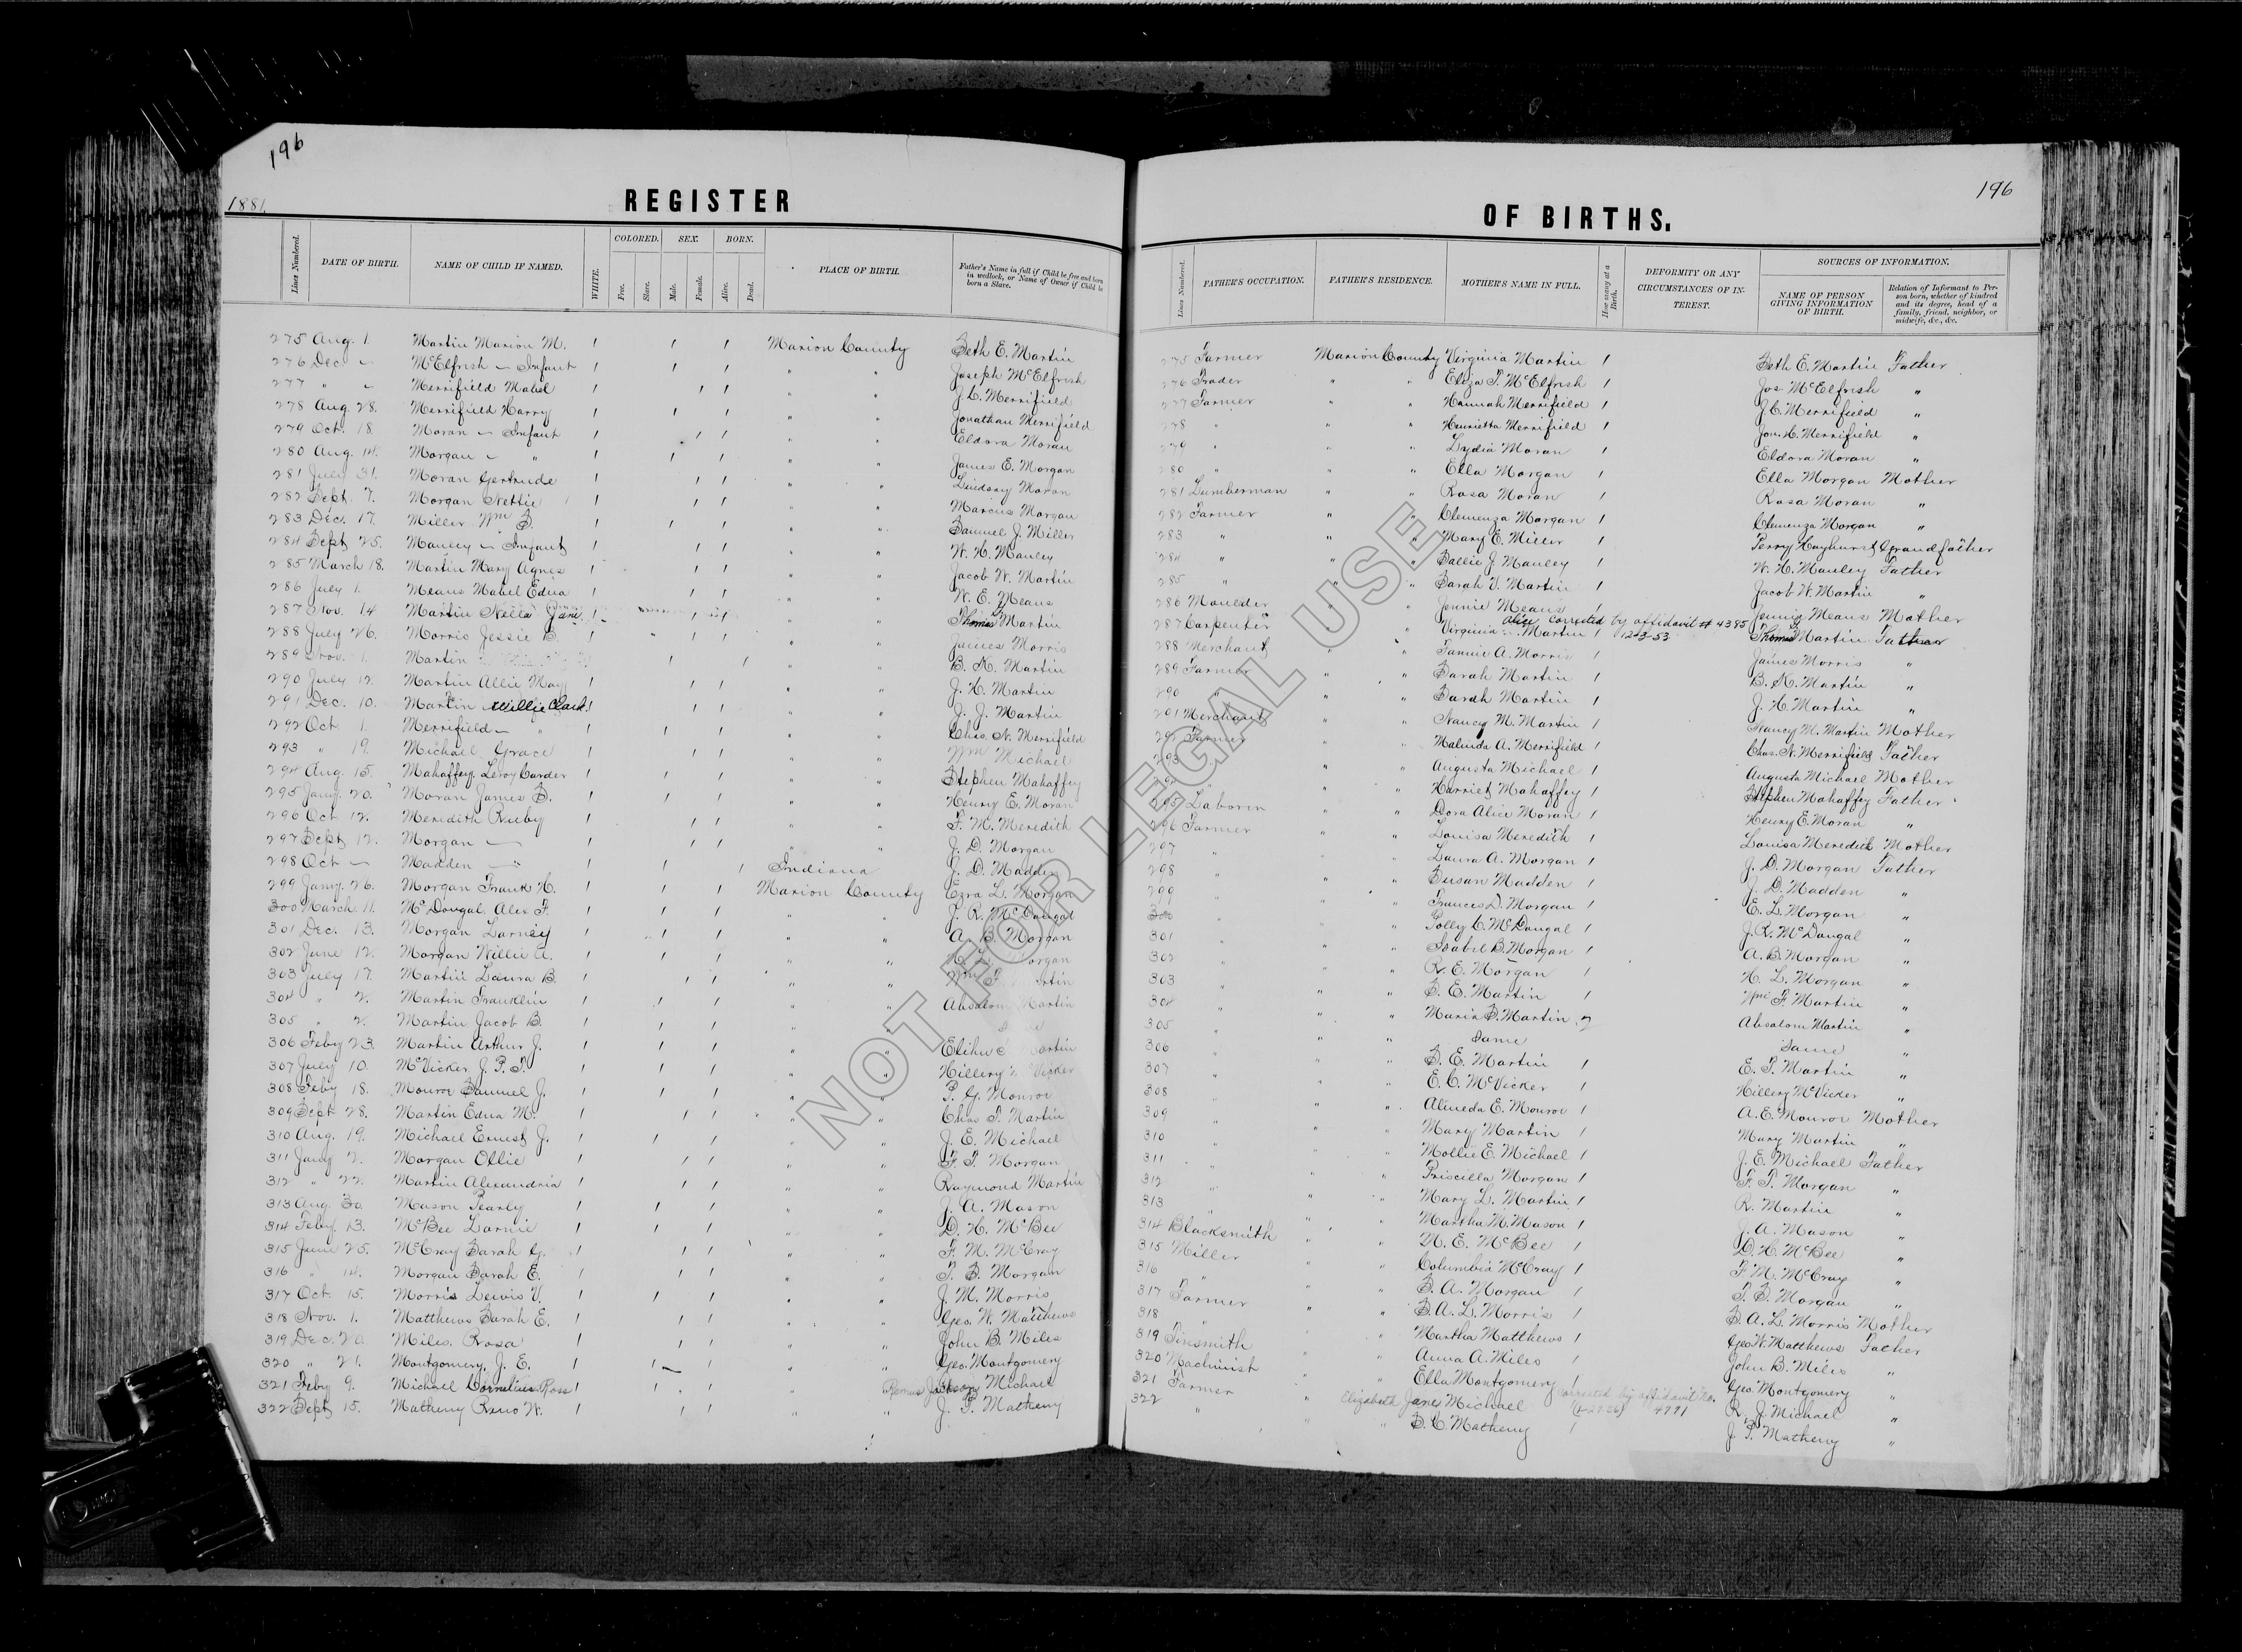 196
1881.
REGISTER
Lines Numbered.
DATE OF BIRTH.
NAME OF CHILD IF NAMED.
WHITE.
COLORED.
Free.
Slave.
SEX.
Male.
Female.
BORN.
Alive.
Dead.
PLACE OF BIRTH.
Father's Name in full if Child be free and born in wedlock, or Name of Owner if Child be born a Slave.
275 Aug. 1. Martin Marion M. 1 1 1 Marion County Seth E. Martin
276 Dec. — McElfresh — Infant 1 1 1 " " Joseph McElfresh
277 " — Merrifield Mabel 1 1 1 " " J. C. Merrifield
278 Aug. 28. Merrifield Harry 1 1 1 " " Jonathan Merrifield
279 Oct. 18. Moran — Infant 1 1 1 " " Eldora Moran
280 Aug. 14. Morgan — " 1 1 1 " " James E. Morgan
281 July 31. Moran Gertrude 1 1 1 " " Lindsay Moran
282 Sept. 7. Morgan Nettie 1 1 1 " " Marcus Morgan
283 Dec. 17. Miller Wm S. 1 1 1 " " Samuel J. Miller
284 Sept. 25. Manley — Infant 1 1 1 " " W. H. Manley
285 March 18. Martin Mary Agnes 1 1 1 " " Jacob W. Martin
286 July 1. Means Mabel Edna 1 1 1 " " W. E. Means
287 Nov. 14 Martin Nella Jane 1 1 1 " " Thomas Martin
288 July 26. Morris Jessie B. 1 1 1 " " James Morris
289 Nov. 1. Martin 1 1 " " B. K. Martin
290 July 12. Martin Allie May 1 1 1 " " J. H. Martin
291 Dec. 10. Martin Willie Clark 1 1 1 " " J. J. Martin
292 Oct. 1. Merrifield — " 1 1 1 " " Chas. N. Merrifield
293 " 19. Michael Grace 1 1 1 " " Wm Michael
294 Aug. 15. Mahaffey Leroy Carder 1 1 1 " " Stephen Mahaffey
295 Jany. 20. Moran James S. 1 1 1 " " Henry E. Moran
296 Oct. 12. Meredith Ruby 1 1 1 " " F. M. Meredith
297 Sept. 12. Morgan — 1 1 1 " " J. D. Morgan
298 Oct. — Madden — " 1 1 1 Indiana J. D. Madden
299 Jany. 26. Morgan Frank H. 1 1 1 Marion County Ezra L. Morgan
300 March. 11. McDougal, Alex F. 1 1 1 " " J. R. McDougal
301 Dec. 13. Morgan Larney 1 1 1 " " A. B. Morgan
302 June 12. Morgan Willie A. 1 1 1 " " Morgan
303 July 17. Martin Laura B. 1 1 1 " " Wm F.
304 " 2. Martin Franklin 1 1 1 " " Absalom Martin
305 " 2. Martin Jacob B. 1 1 1 "
306 Feby 23. Martin Arthur J. 1 1 1 " " Elihu Martin
307 July 10. McVicker J. P. T. 1 1 1 " " Hillery Vicker
308 Feby 18. Monroe Samuel J. 1 1 1 " " P. G. Monroe
309 Sept. 28. Martin Edna M. 1 1 1 " " Chas T. Martin
310 Aug. 19. Michael Ernest J. 1 1 1 " " J. E. Michael
311 Jany 2. Morgan Ollie 1 1 1 " " F. P. Morgan
312 " 22. Martin Alexandria 1 1 1 " " Raymond Martin
313 Aug. 30. Mason Pearly 1 1 1 " " J. A. Mason
314 Feby 13. McBee Larnie 1 1 1 " " D. H. McBee
315 June 25. McCray Sarah G. 1 1 1 " " F. M. McCray
316 " 14. Morgan Sarah E. 1 1 1 " " T. S. Morgan
317 Oct. 15. Morris Lewis V. 1 1 1 " " J. M. Morris
318 Nov. 1. Matthews Sarah E. 1 1 1 " " Geo. W. Matthews
319 Dec. 20. Miles. Rosa 1 1 1 " " John B. Miles
320 " 21. Montgomery, J. E. 1 1 1 " " Geo. Montgomery
321 Feby 9. Michael Cornelius Ross 1 1 1 " Remus Jackson Michael
322 Sept. 15. Matheny Reno W. 1 1 1 " " J. P. Matheny
196
OF BIRTHS.
Lines Numbered.
FATHER'S OCCUPATION.
FATHER'S RESIDENCE.
MOTHER'S NAME IN FULL.
How many at a Birth.
DEFORMITY OR ANY CIRCUMSTANCES OF INTEREST.
SOURCES OF INFORMATION.
NAME OF PERSON GIVING INFORMATION OF BIRTH.
Relation of Informant to Person born, whether of kindred and its degree, head of a family, friend, neighbor, or midwife, &c., &c.
275 Farmer Marion County Virginia Martin 1 Seth E. Martin Father
276 Trader " " Eliza T. McElfresh 1 Jos. McElfresh "
277 Farmer " " Hannah Merrifield 1 J. C. Merrifield "
278 " " " Henrietta Merrifield 1 Jon. H. Merrifield "
279 " " " Lydia Moran 1 Eldora Moran "
280 " " " Ella Morgan 1 Ella Morgan Mother
281 Lumberman " " Rosa Moran 1 Rosa Moran "
282 Farmer " " Clemenza Morgan 1 Clemenza Morgan "
283 " " " Mary E. Miller 1 Perry Hayhurst Grandfather
284 " " " Sallie J. Manley 1 W. H. Manley Father
285 " " " Sarah V. Martin 1 Jacob W. Martin "
286 Moulder " " Jennie Means 1 Jennie Means Mother
287 Carpenter " " Virginia Alice Martin 1 corrected by affidavit # 4385 12-3-53 Thomas Martin Father
288 Merchant " " Fannie A. Morris 1 James Morris "
289 Farmer " " Sarah Martin 1 B. K. Martin "
290 " " " Sarah Martin 1 J. H. Martin "
291 Merchant " " Nancy M. Martin 1 Nancy M. Martin Mother
292 Farmer " " Malinda A. Merrifield 1 Chas. N. Merrifield Father
293 " " " Augusta Michael 1 Augusta Michael Mother
294 " " " Harriet Mahaffey 1 Stephen Mahaffey Father
295 Laborer " " Dora Alice Moran 1 Henry E. Moran "
296 Farmer " " Louisa Meredith 1 Louisa Meredith Mother
297 " " " Laura A. Morgan 1 J. D. Morgan Father
298 " " " Susan Madden 1 J. D. Madden "
299 " " " Frances D. Morgan 1 E. L. Morgan "
300 " " " Polly C. McDougal 1 J. R. McDougal "
301 " " " Isabel B. Morgan 1 A. B. Morgan "
302 " " " R. E. Morgan 1 H. L. Morgan "
303 " " " S. E. Martin 1 Wm F. Martin "
304 " " " Maria S. Martin 2 Absalom Martin "
305 " " " Same Same "
306 " " " S. E. Martin 1 E. T. Martin "
307 " " " E. C. McVicker 1 Hillery McVicker "
308 " " " Almeda E. Monroe 1 A. E. Monroe Mother
309 " " " Mary Martin 1 Mary Martin "
310 " " " Mollie E. Michael 1 J. E. Michael Father
311 " " " Priscilla Morgan 1 F. P. Morgan "
312 " " " Mary L. Martin 1 R. Martin "
313 " " " Martha M. Mason 1 J. A. Mason "
314 Blacksmith " " N. E. McBee 1 D. H. McBee "
315 Miller " " Columbia McCray 1 F. M. McCray "
316 " " " S. A. Morgan 1 T. S. Morgan "
317 Farmer " " S. A. L. Morris 1 S. A. L. Morris Mother
318 " " " Martha Matthews 1 Geo. W. Matthews Father
319 Tinsmith " " Anna A. Miles 1 John B. Miles "
320 Machinist " " Ella Montgomery 1 Geo. Montgomery "
321 Farmer " Elizabeth Jane Michael 1 corrected by affidavit No. 4791 R. J. Michael "
322 " " " S. C. Matheny 1 J. P. Matheny "
NOT FOR LEGAL USE